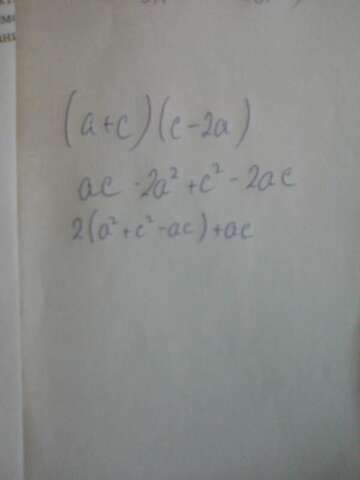 (a+c)(c-2a)
ac - 2a² + c² - 2ac
2(a² + c² - ac) + ac